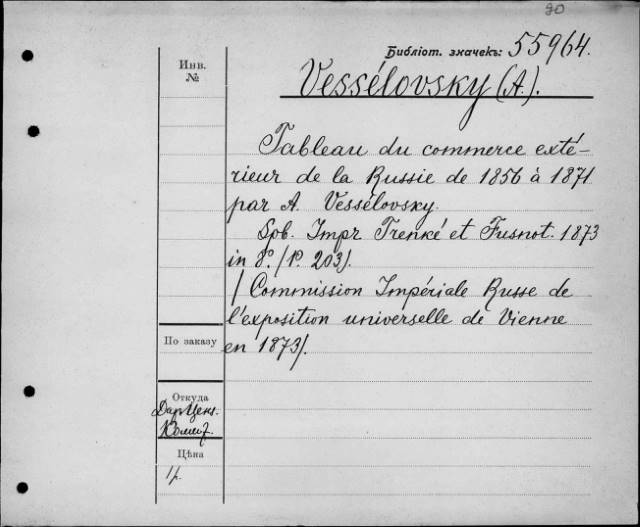 20
Библіот. значекъ: 55964.
Инв.
№
Vessélovsky (A.).
Tableau du commerce exté-
rieur de la Russie de 1856 à 1871
par A. Vessélovsky.
Spb. Impr Trenké et Fusnot. 1873
in 8°. (P. 203).
(Commission Impériale Russe de
l'exposition universelle de Vienne
en 1873).
По заказу
Откуда
Дар Ценз.
Комит.
Цѣна
1 р.